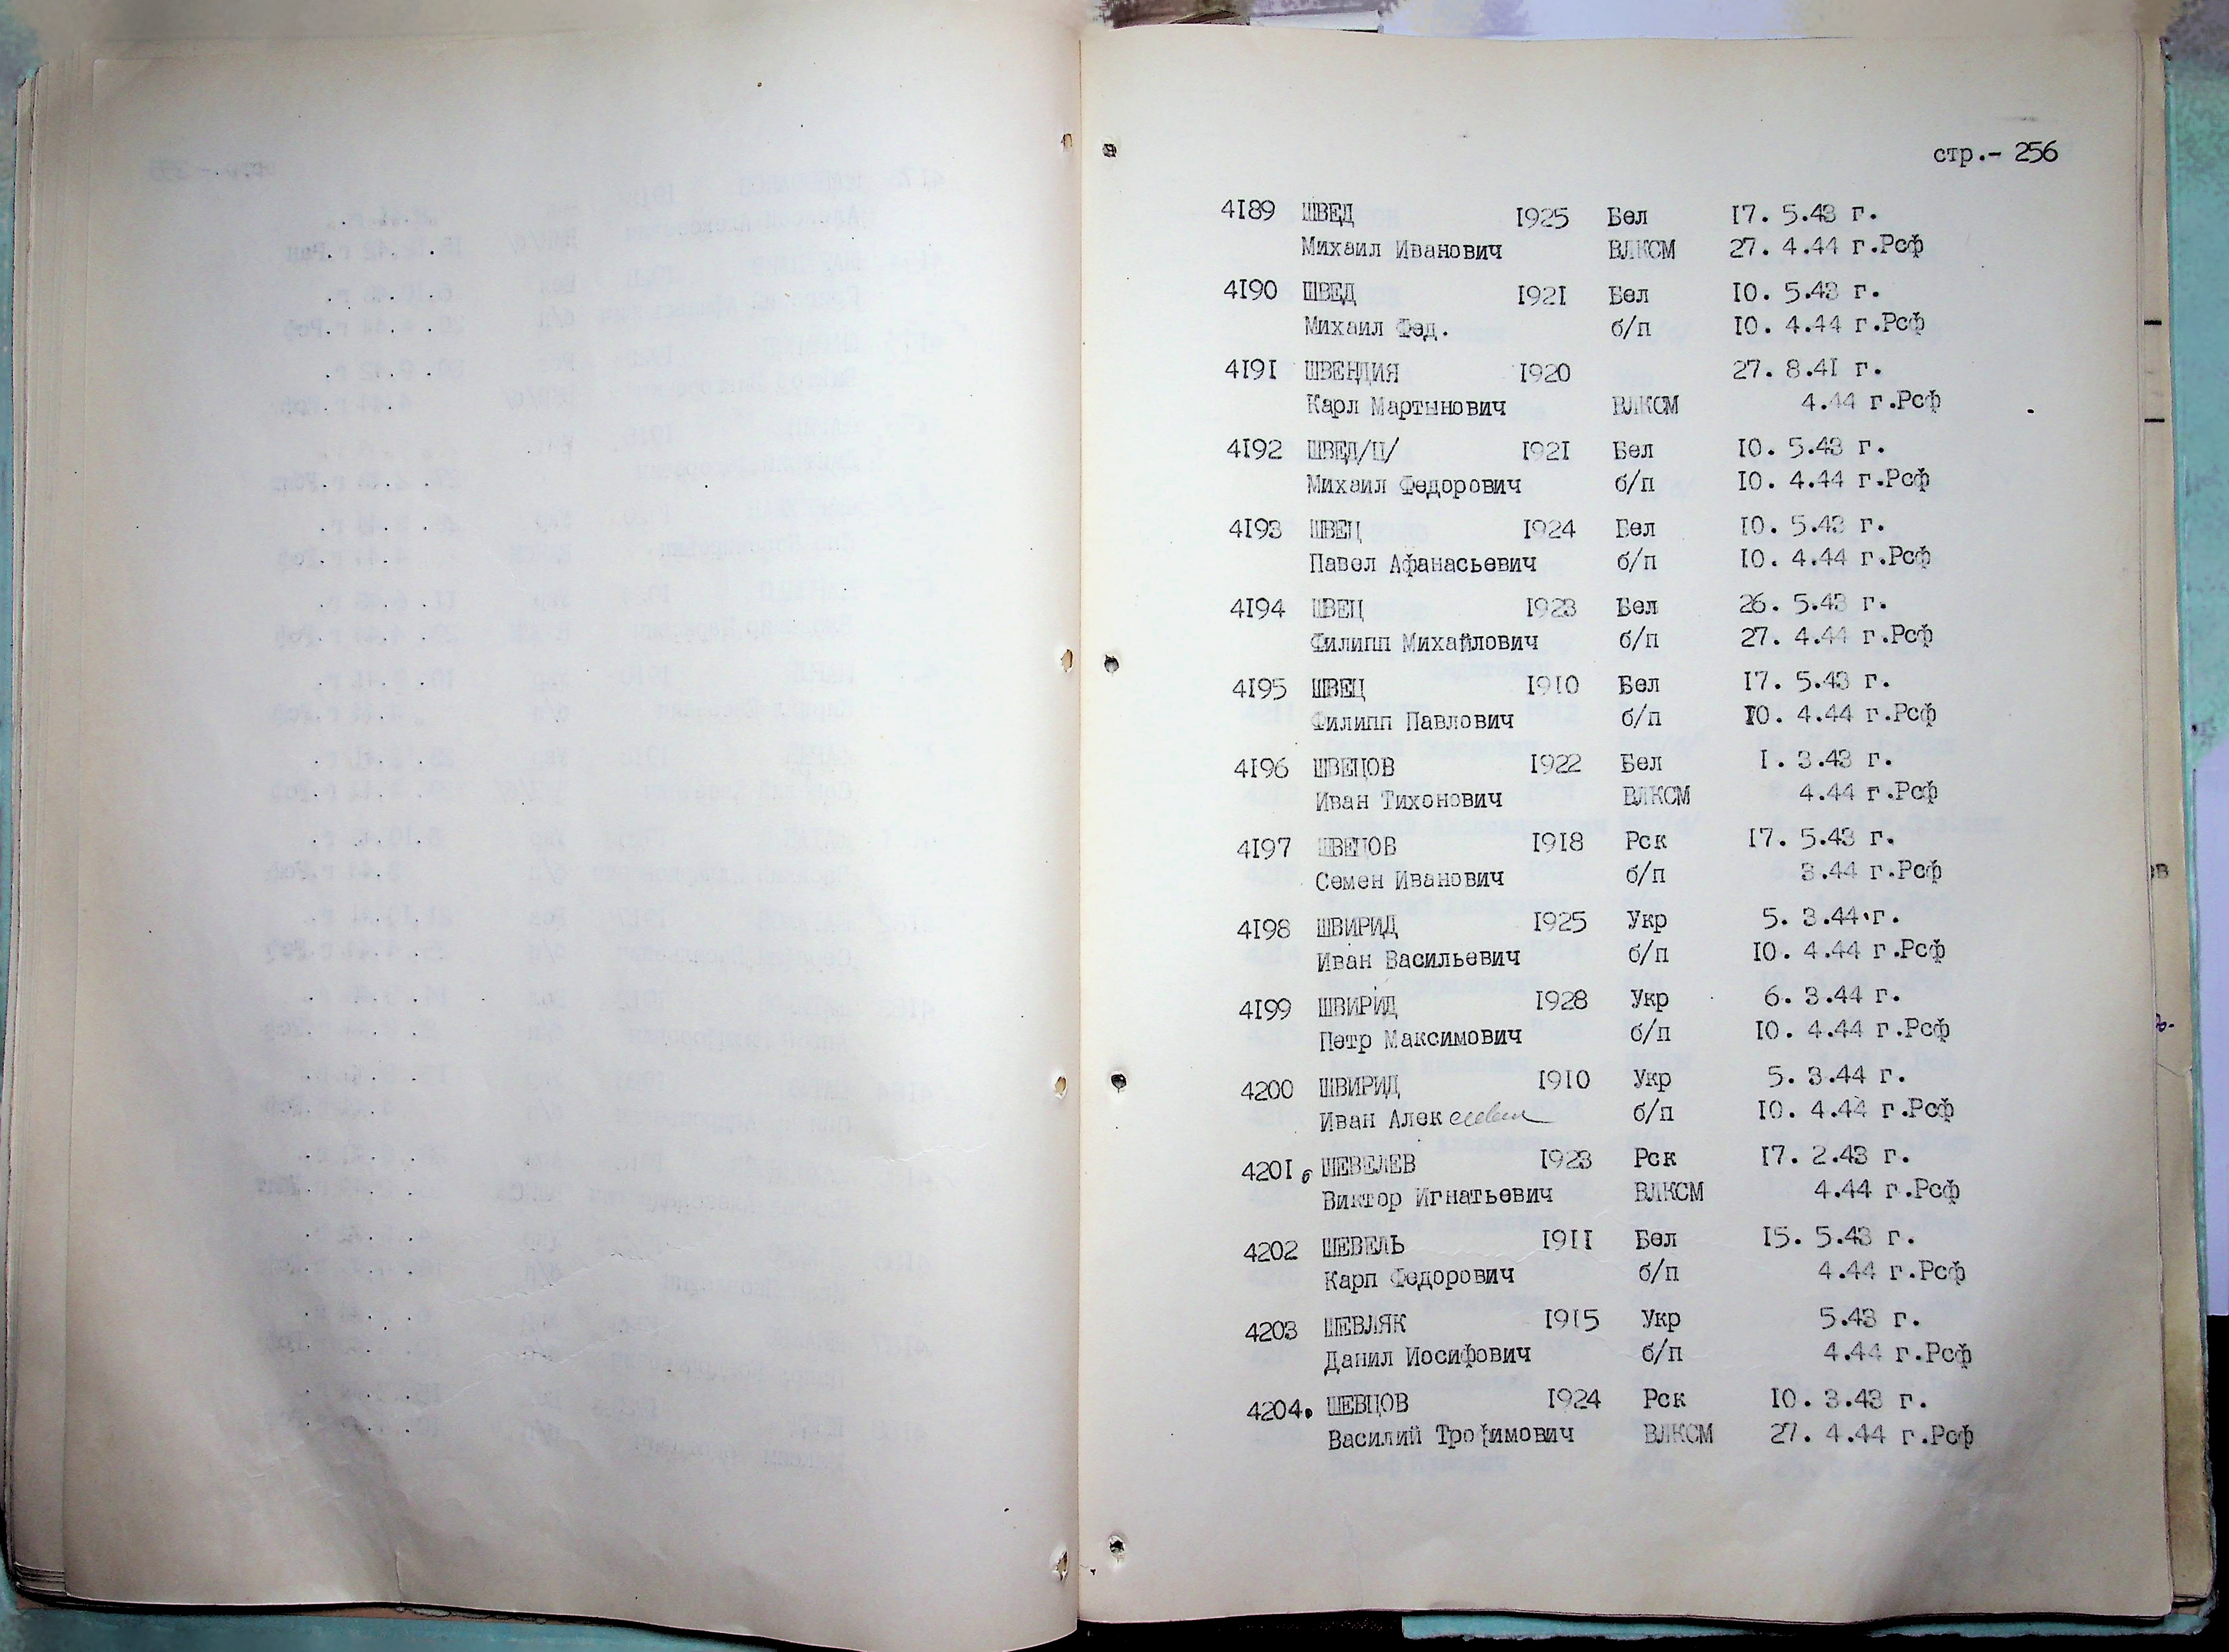 стр.- 256
4189 ШВЕД 1925 Бел 17. 5.43 г.
Михаил Иванович ВЛКСМ 27. 4.44 г.Рсф
4190 ШВЕД 1921 Бел 10. 5.43 г.
Михаил Фед. б/п 10. 4.44 г.Рсф
4191 ШВЕНДИЯ 1920 27. 8.41 г.
Карл Мартынович ВЛКСМ 4.44 г.Рсф
4192 ШВЕД/Ц/ 1921 Бел 10. 5.43 г.
Михаил Федорович б/п 10. 4.44 г.Рсф
4193 ШВЕЦ 1924 Бел 10. 5.43 г.
Павел Афанасьевич б/п 10. 4.44 г.Рсф
4194 ШВЕЦ 1923 Бел 26. 5.43 г.
Филипп Михайлович б/п 27. 4.44 г.Рсф
4195 ШВЕЦ 1910 Бел 17. 5.43 г.
Филипп Павлович б/п 10. 4.44 г.Рсф
4196 ШВЕЦОВ 1922 Бел 1. 3.43 г.
Иван Тихонович ВЛКСМ 4.44 г.Рсф
4197 ШВЕЦОВ 1918 Рск 17. 5.43 г.
Семен Иванович б/п 3.44 г.Рсф
4198 ШВИРИД 1925 Укр 5. 3.44 г.
Иван Васильевич б/п 10. 4.44 г.Рсф
4199 ШВИРИД 1928 Укр 6. 3.44 г.
Петр Максимович б/п 10. 4.44 г.Рсф
4200 ШВИРИД 1910 Укр 5. 3.44 г.
Иван Алексеевич б/п 10. 4.44 г.Рсф
4201. ШЕВЕЛЕВ 1923 Рск 17. 2.43 г.
Виктор Игнатьевич ВЛКСМ 4.44 г.Рсф
4202 ШЕВЕЛЬ 1911 Бел 15. 5.43 г.
Карп Федорович б/п 4.44 г.Рсф
4203 ШЕВЛЯК 1915 Укр 5.43 г.
Данил Иосифович б/п 4.44 г.Рсф
4204. ШЕВЦОВ 1924 Рск 10. 3.43 г.
Василий Трофимович ВЛКСМ 27. 4.44 г.Рсф